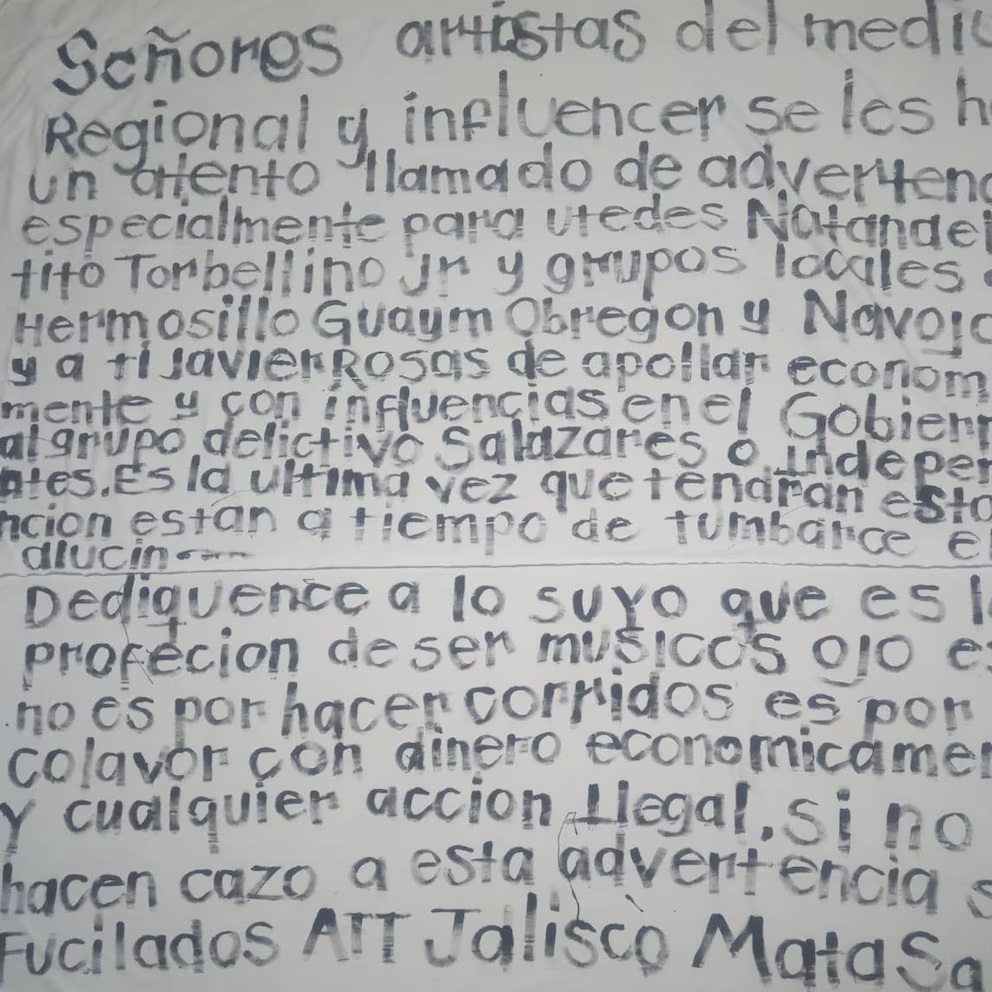 Señores artistas del medic
Regional y influencer se les h
un atento llamado de advertenc
especialmente para utedes Natandei
tito Torbellino jr y grupos locales
Hermosillo Guaym Obregon y Navojo
y a ti Javier Rosas de apollar econom
mente y con influencias en el Gobiern
al grupo delictivo Salazares o indepen
ntes. Es la ultima vez que tendran esta
ncion estan a tiempo de tumbarce el
alucin
Dediquence a lo suyo que es l
profecion de ser musicos ojo es
no es por hacer corridos es por
colavor con dinero economicamen
y cualquier accion Ilegal. si no
hacen cazo a esta advertencia s
Fucilados ATT Jalisco Mata Sa